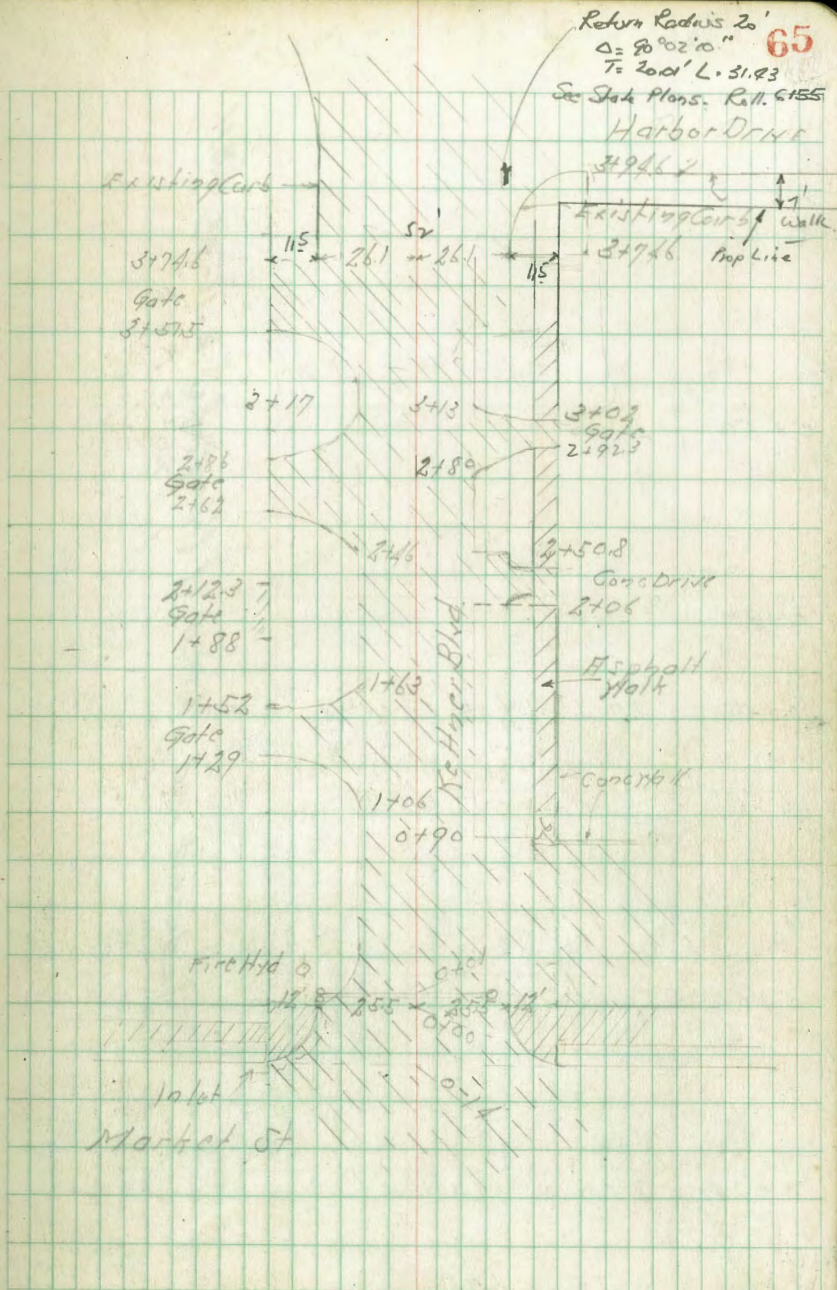 Return Radius 20'
65
Δ= 90°02'10"
T= 20.01' L. 31.43
See State Plans. Roll. 6155
Harbor Drive
3+946.2
Existing Curb
Existing Curb
7'
Walk
Prop Line
52'
11.5
26.1
26.1
11.5
3+74.6
3+746
Gate
3+51.5
3+17
3+13
3+02
Gate
2+92.3
2+86
Gate
2+62
2+80
2+46
2+50.8
Conc Drive
2+06
2+12.3
Gate
1+88
Kettner Blvd
Asphalt
Walk
1+63
1+52
Gate
1+29
1+06
0+90
Fire Hyd
0+01
12'
25.5
25.5
12'
0+00
Inlet
0-14
Market St